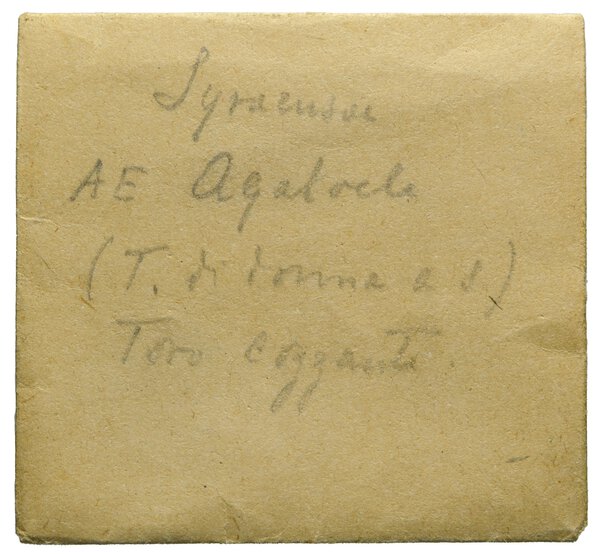 Syracusae
AE Agatocle
(T. di donna a s)
Toro cozzante.